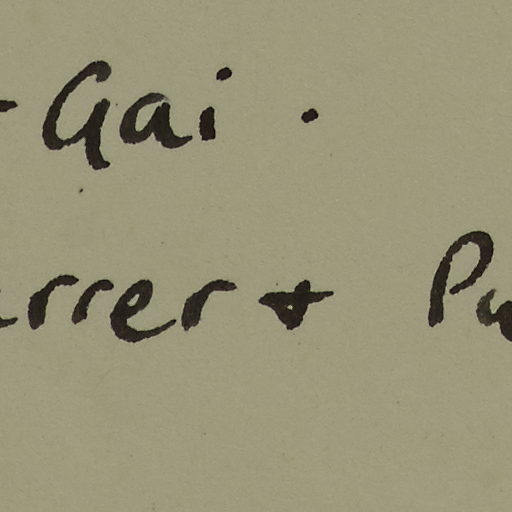 -Gai.
rrer + Pu